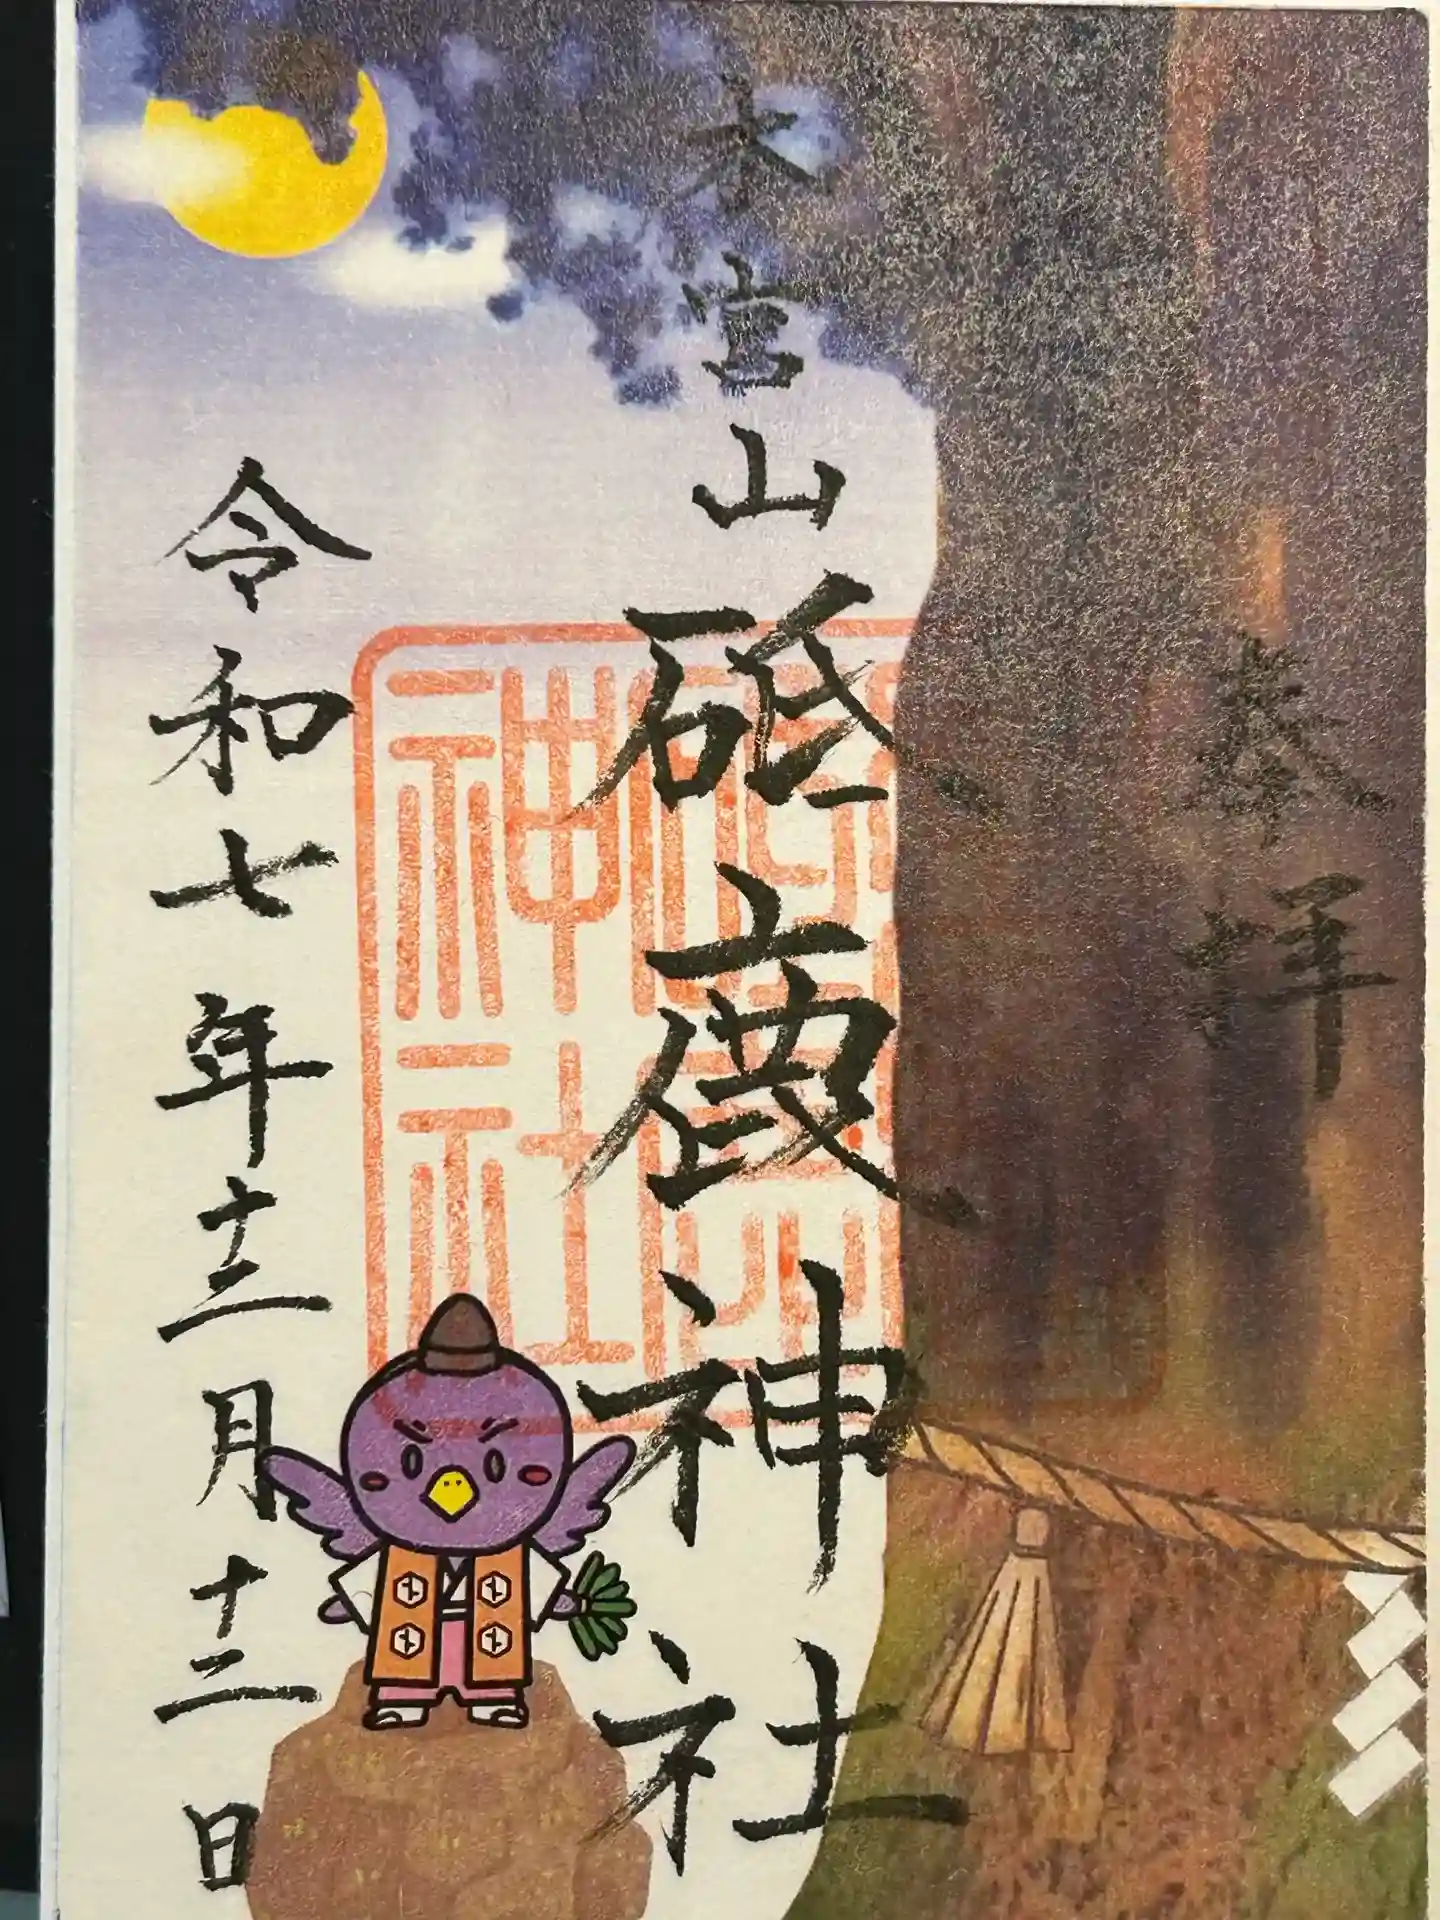 奉拝
本宮山
砥鹿神社
令和七年十二月十二日
神社